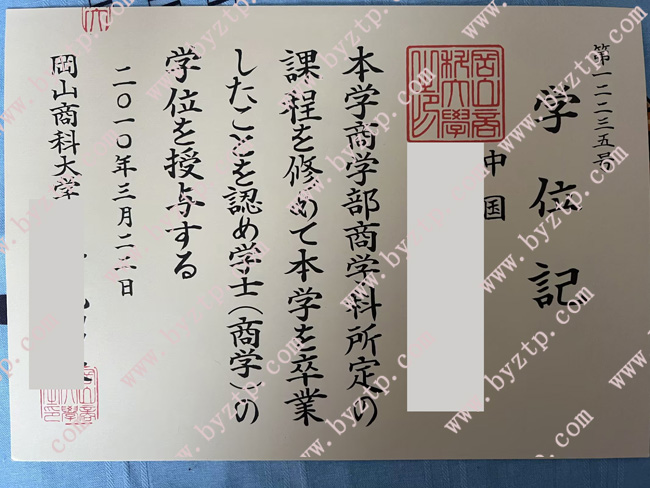 第一二二三五号
学位記
中国
本学商学部商学科所定の
課程を修めて本学を卒業
したことを認め学士(商学)の
学位を授与する
二〇一〇年三月二二日
岡山商科大学
www.byztp.com